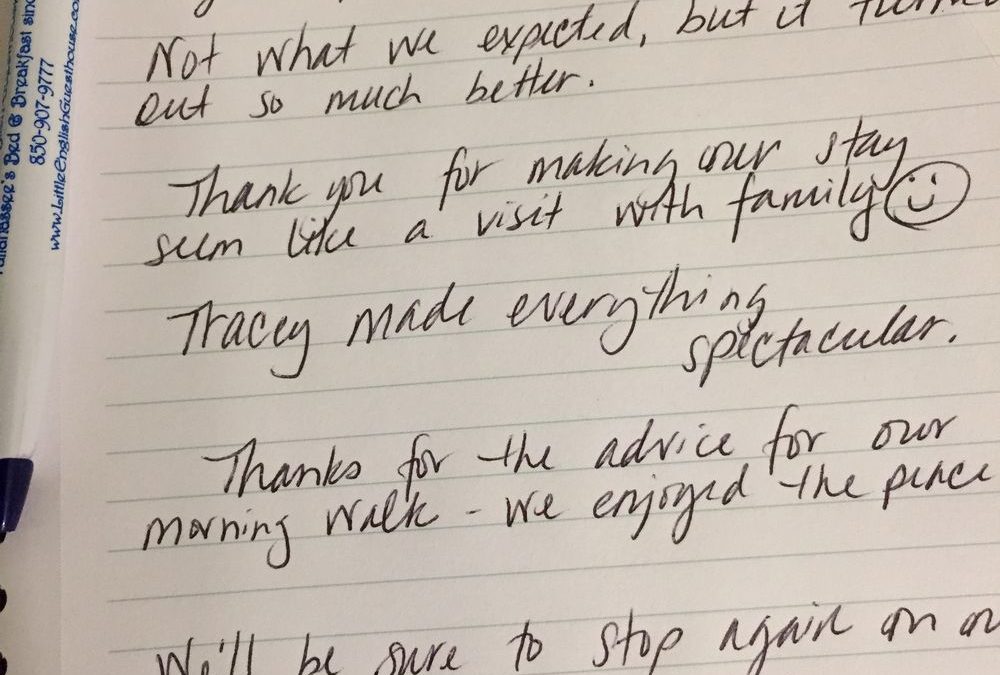 Not what we expected, but it turned
out so much better.
Thank you for making our stay
seem like a visit with family
Tracey made everything
spectacular.
Thanks for the advice for our
morning walk - we enjoyed the peace
We'll be sure to stop again on
Tallahassee's Bed & Breakfast sinc
850-907-9777
www.LittleEnglishGuesthouse.co